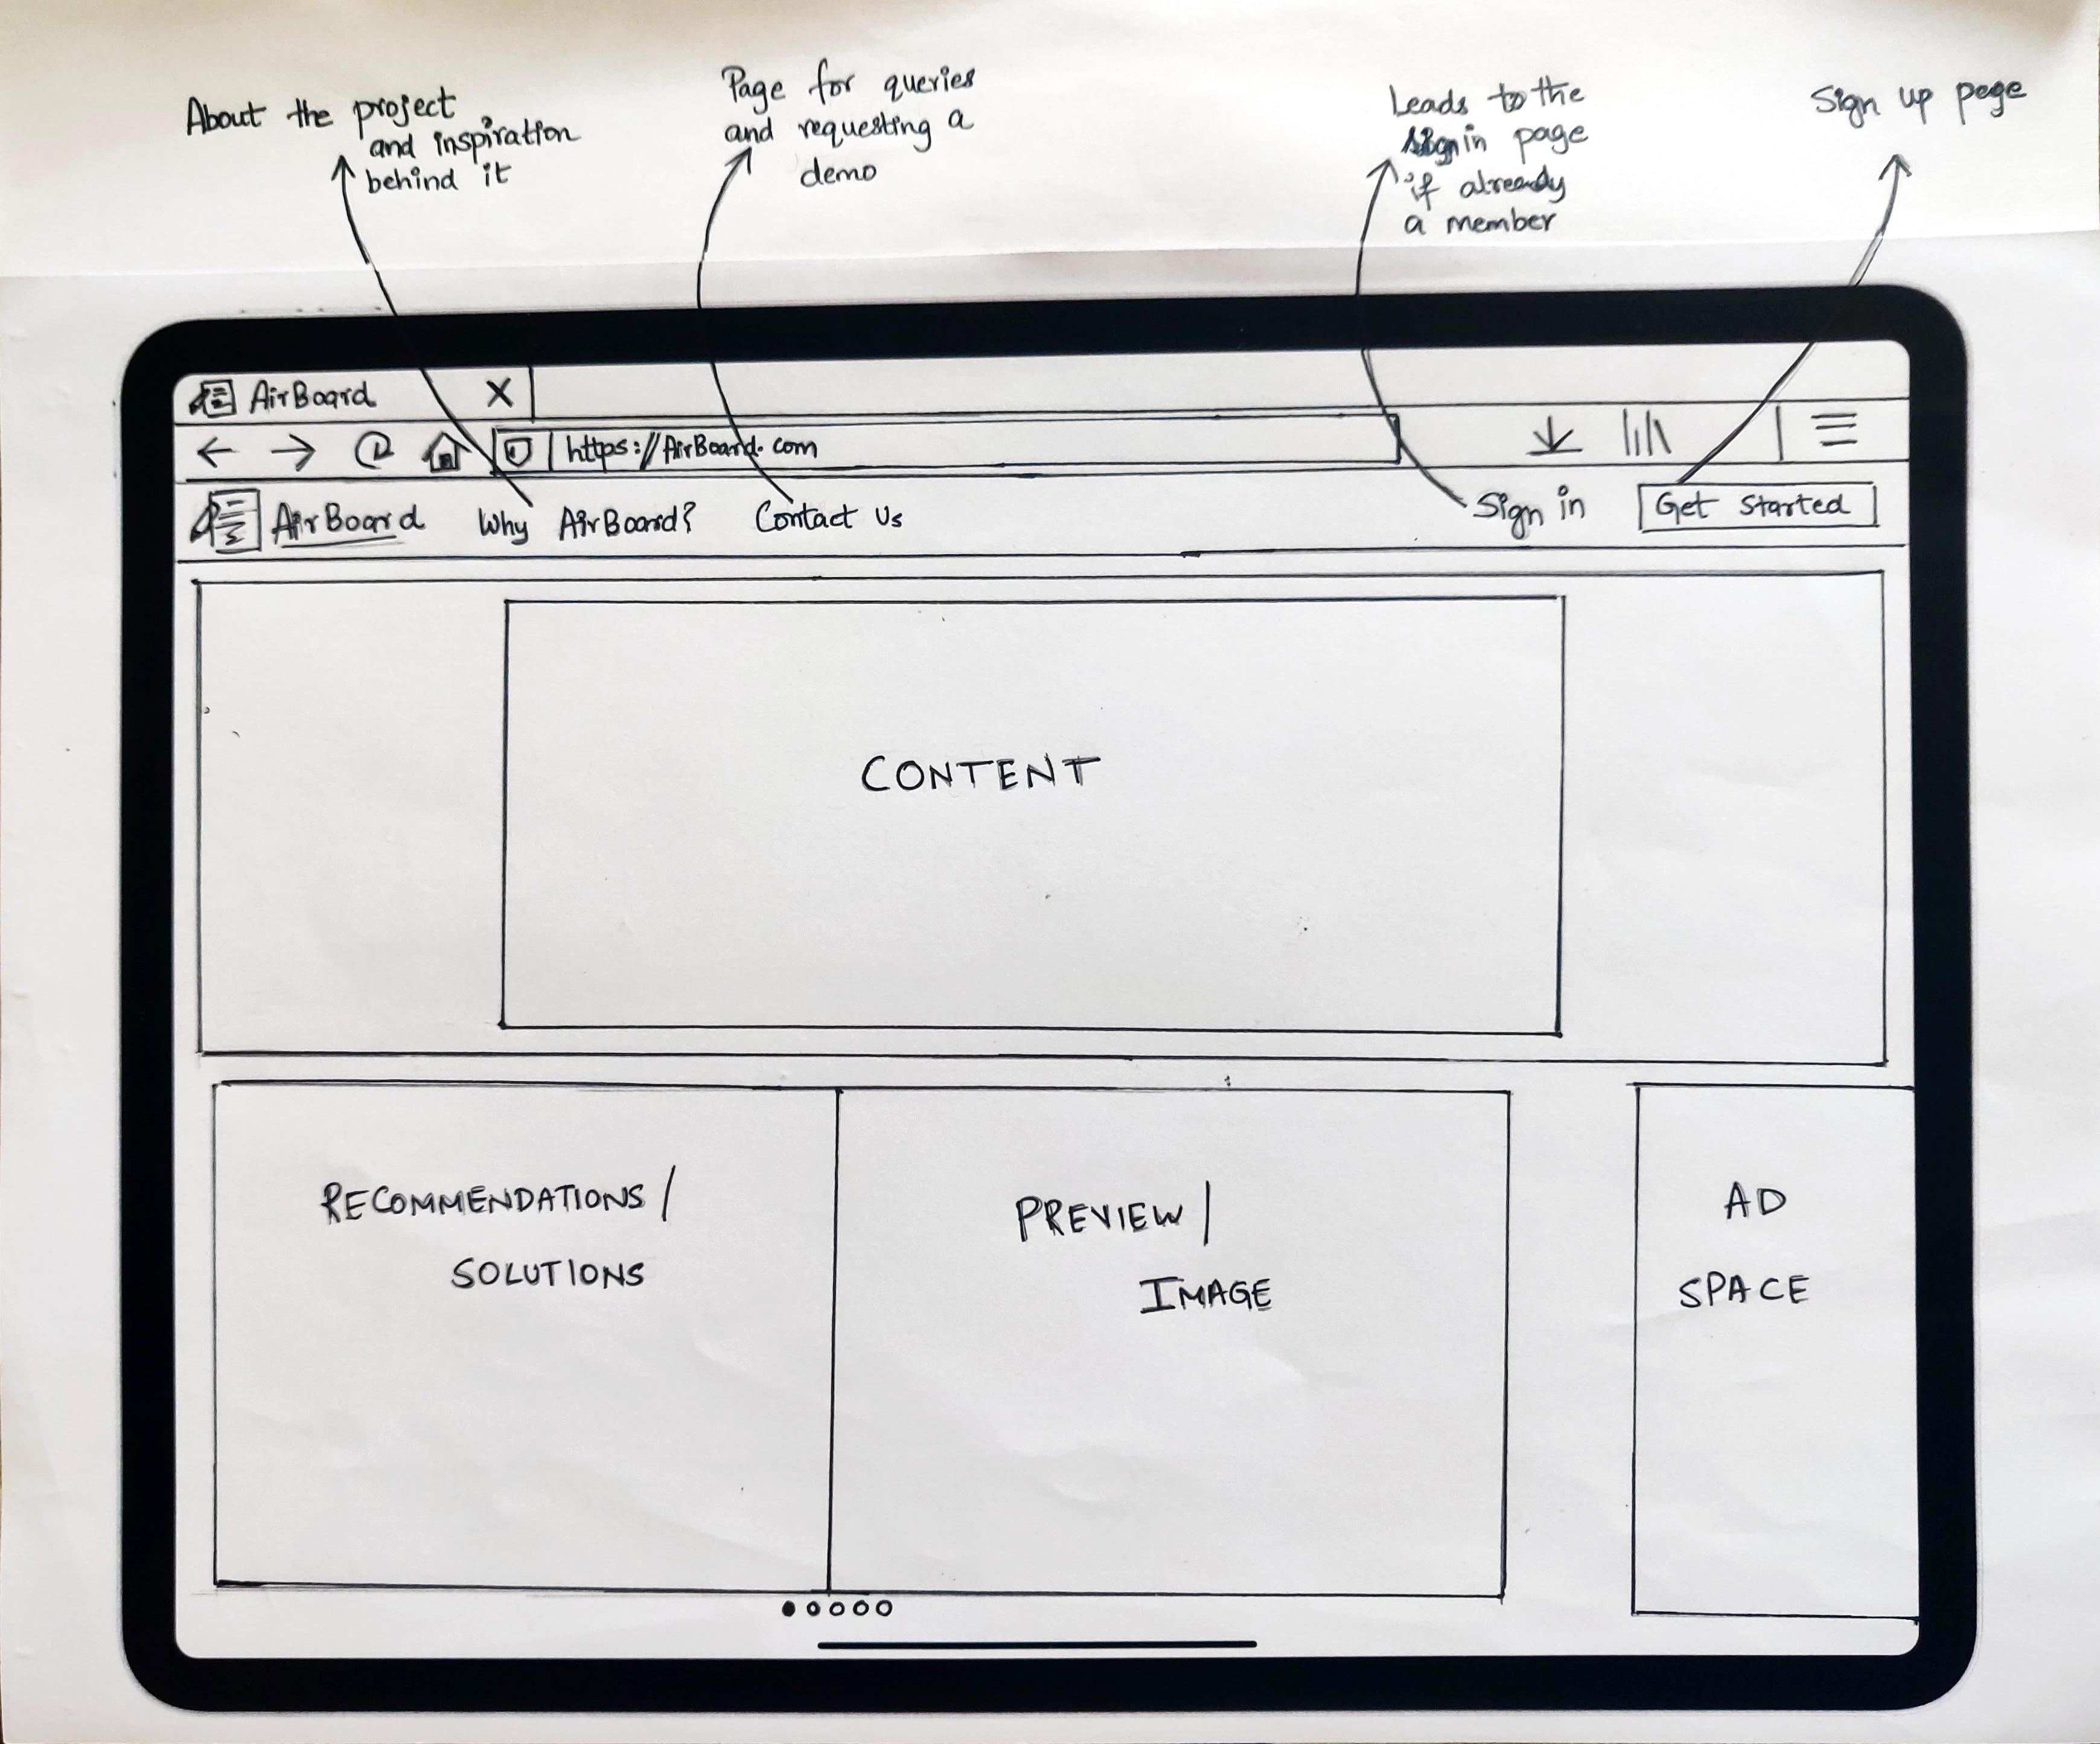 About the project
and inspiration
behind it
Page for queries
and requesting a
demo
Leads to the
sign in page
if already
a member
Sign up page
AirBoard X
https://AirBoard.com
AirBoard Why AirBoard? Contact Us Sign in Get Started
CONTENT
RECOMMENDATIONS/
SOLUTIONS
PREVIEW/
IMAGE
AD
SPACE